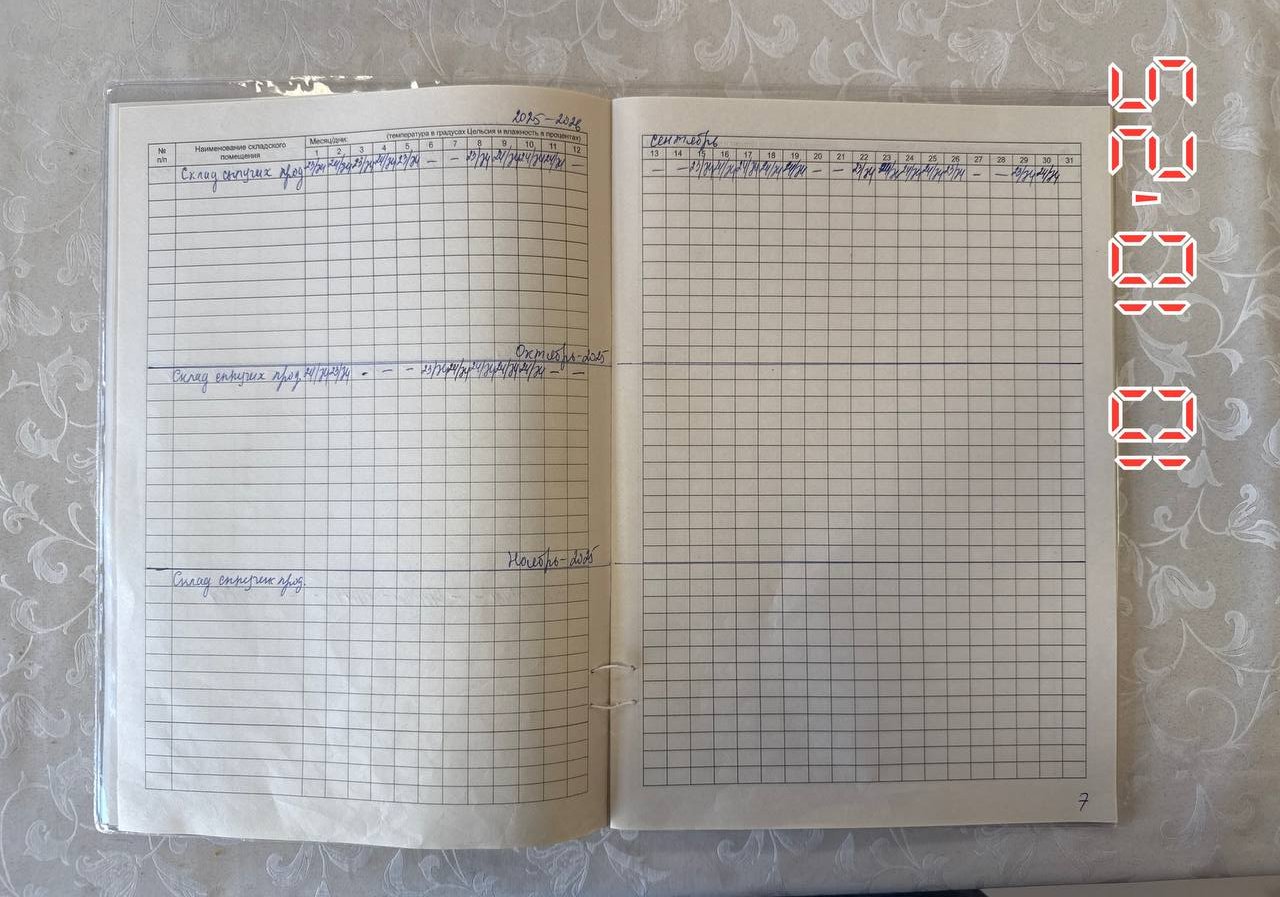 2025-2026
Месяц/дни: (температура в градусах Цельсия и влажность в процентах)
№ п/п
Наименование складского помещения
1 2 3 4 5 6 7 8 9 10 11 12
Склад сыпучих прод 23/74 24/74 23/74 24/74 23/74 – – 23/74 24/74 24/74 24/74 –
Октябрь-2025
Склад сыпучих прод. 24/74 23/74 - - - 23/74 24/74 24/74 24/74 24/74 – –
Ноябрь-2025
Склад сыпучих прод.
сентябрь
13 14 15 16 17 18 19 20 21 22 23 24 25 26 27 28 29 30 31
– – 23/74 24/74 24/74 24/74 24/74 – – 23/74 24/74 24/74 24/74 23/74 – – 23/74 24/74
7
10 10 '25